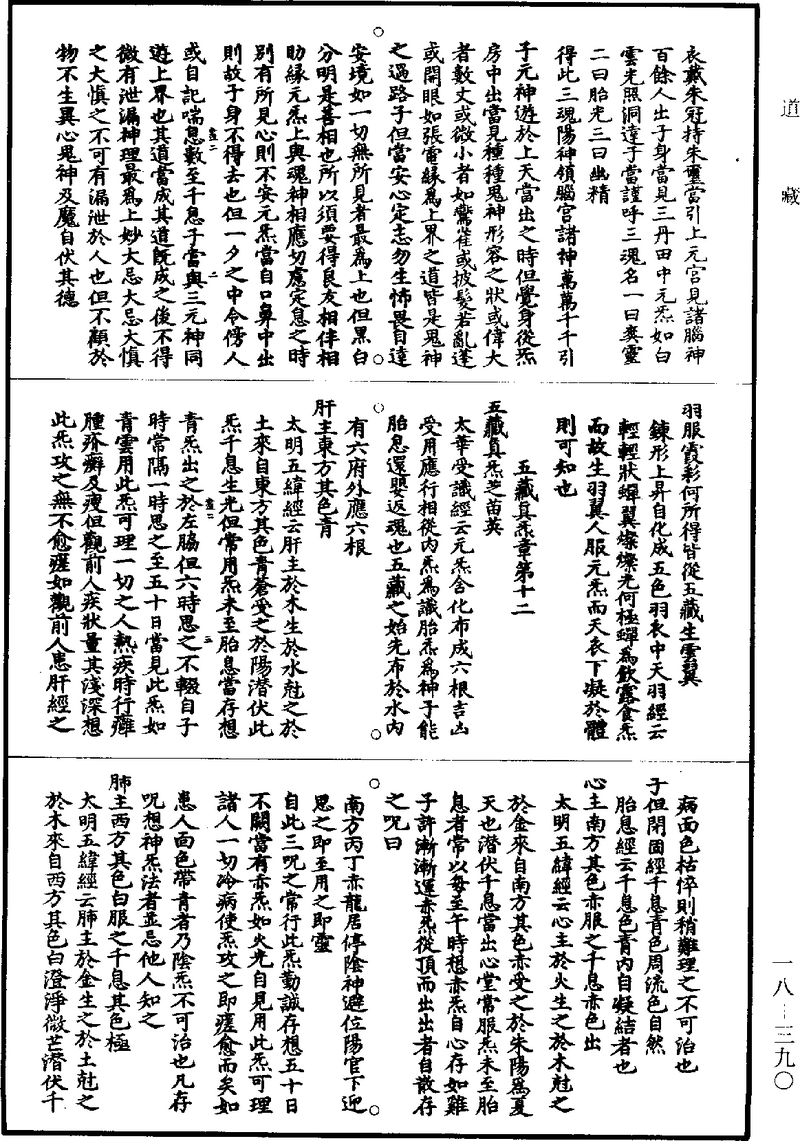 道藏
衣戴朱冠持朱璽當引上元宮見諸腦神
百餘人出子身當見三丹田中元炁如白
雲光照洞達子當謹呼三魂名一曰爽靈
二曰胎光三曰幽精
得此三魂陽神領腦宮諸神萬萬千千引
子元神遊於上天當出之時但覺身從炁
房中出當見種種鬼神形容之狀或偉大
者數丈或微小者如鸞雀或披髮若亂蓬
或開眼如張電緣為上界之道皆是鬼神
之過路子但當安心定志勿生怖畏自達
安境如一切無所見者最為上也但黑白
分明是善相也所以須要得良友相伴相
助緣元炁上與魂神相應切慮定息之時
別有所見心則不安元炁當自口鼻中出
則故子身不得去也但一夕之中令傍人
或自記喘息數至千息子當與三元神同
遊上界也其道當成其道既成之後不得
微有泄漏神理最為上妙大忌大忌大慎
之大慎之不可有漏泄於人也但不顧於
物不生異心鬼神及魔自伏其德
羽服霞彩何所得皆從五藏生雲翼
鍊形上昇自化成五色羽衣中天羽經云
輕輕狀蟬翼燦燦光何極蟬為飲露食炁
而故生羽翼人服元炁而天衣下凝於體
則可知也
五藏真炁章第十二
五藏真炁芝苗英
太華受識經云元炁含化布成六根吉凶
受用應行相從內炁為識胎炁為神子能
胎息還嬰返魂也五藏之始先布於水內
有六府外應六根
肝主東方其色青
太明五緯經云肝主於木生於水尅之於
土來自東方其色青蒼受之於陽潛伏此
炁千息生光但常用炁未至胎息當存想
青炁出之於左脇但六時思之不輟自子
時常隔一時思之至五十日當見此炁如
青雲用此炁可理一切之人熱疾時行癉
腫疥癬及瘦但觀前人疾狀量其淺深想
此炁攻之無不愈瘥如觀前人患肝經之
病面色枯悴則稍難理之不可治也
子但閉固經千息青色周流色自然
胎息經云千息色青內自凝結者也
心主南方其色赤服之千息赤色出
太明五緯經云心主於火生之於木尅之
於金來自南方其色赤受之於朱陽為夏
天也潛伏千息當出心堂常服炁未至胎
息者常以每至午時想赤炁自心存如雞
子許漸漸運赤炁從頂而出出者自散存
之呪曰
南方丙丁赤龍居停陰神避位陽官下迎
思之即至用之即靈
自此三呪之常行此炁勤誠存想五十日
不闕當有赤炁如火光自見用此炁可理
諸人一切冷病使炁攻之即瘥愈而矣如
患人面色帶青者乃陰炁不可治也凡存
呪想神炁法者並忌他人知之
肺主西方其色白服之千息其色極
太明五緯經云肺主於金生之於土尅之
於木來自西方其色白澄淨微芒潛伏千
一八—三九〇